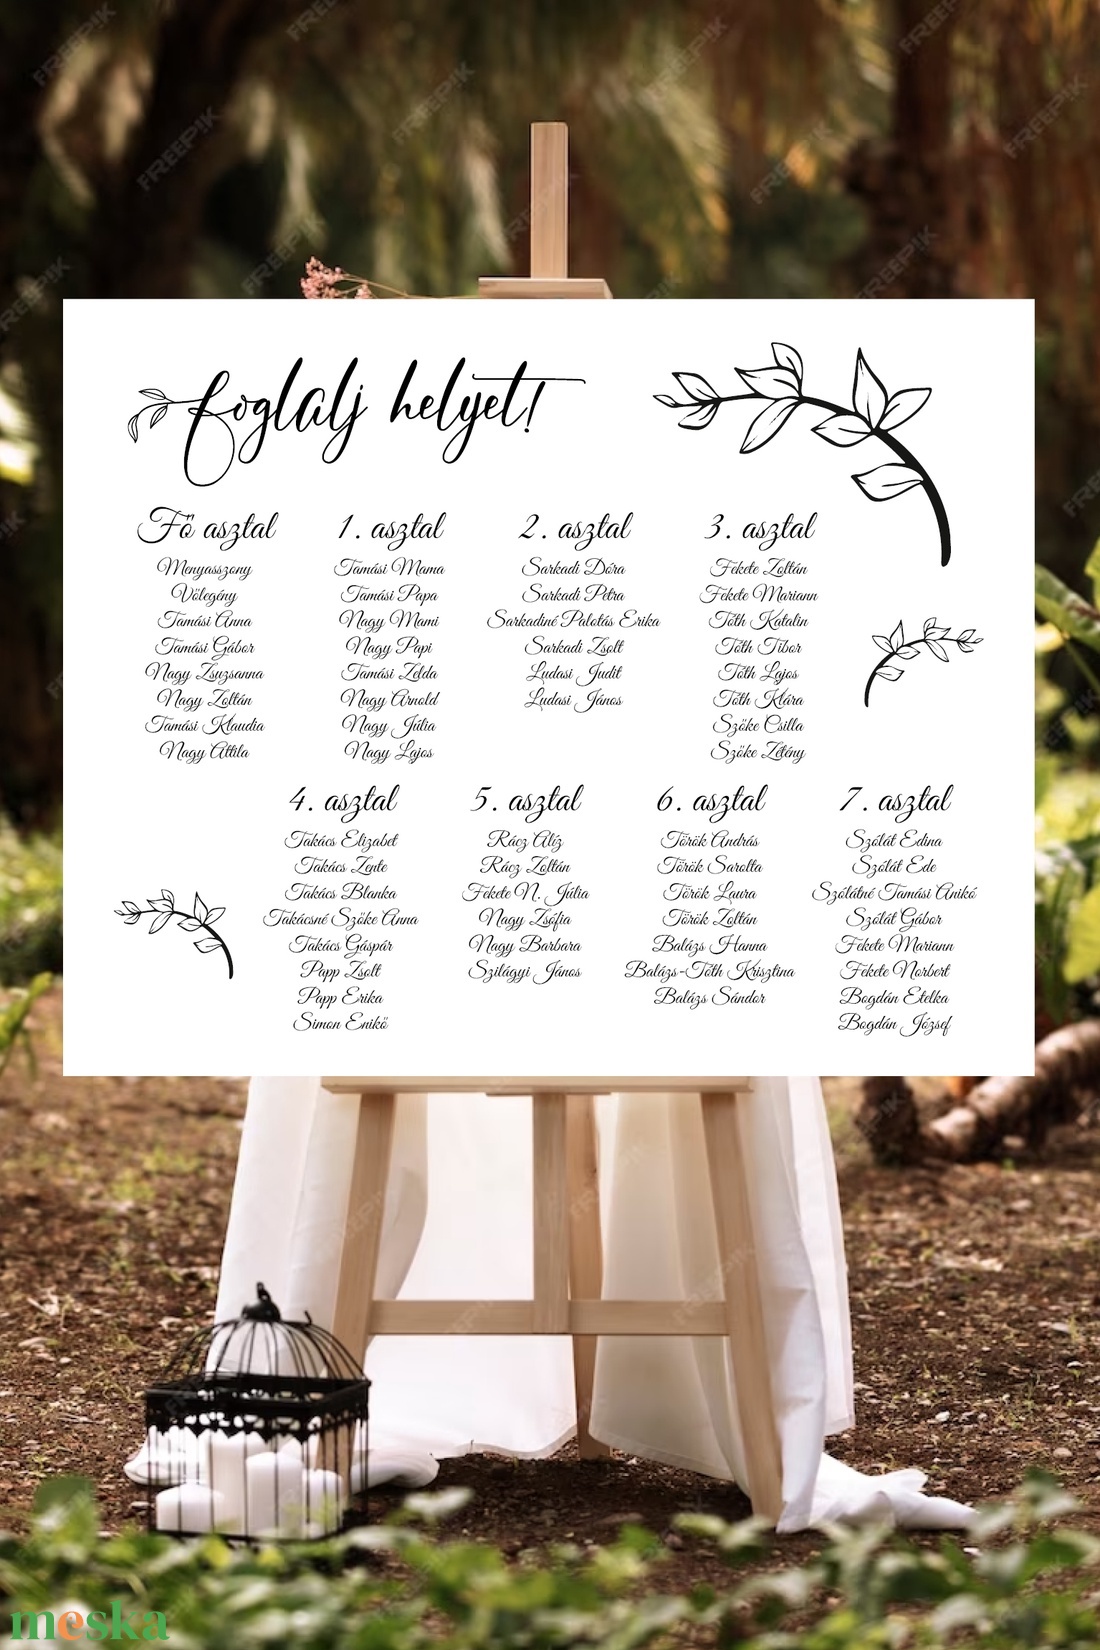 foglalj helyet!
Fő asztal
Menyasszony
Vőlegény
Tamási Anna
Tamási Gábor
Nagy Zsuzsanna
Nagy Zoltán
Tamási Klaudia
Nagy Attila
1. asztal
Tamási Mama
Tamási Papa
Nagy Mami
Nagy Papi
Tamási Zelda
Nagy Arnold
Nagy Júlia
Nagy Lajos
2. asztal
Sarkadi Dóra
Sarkadi Petra
Sarkadiné Palotás Erika
Sarkadi Zsolt
Ludasi Judit
Ludasi János
3. asztal
Fekete Zoltán
Fekete Mariann
Tóth Katalin
Tóth Tibor
Tóth Lajos
Tóth Klára
Szőke Csilla
Szőke Zétény
4. asztal
Takács Elizabet
Takács Zente
Takács Blanka
Takácsné Szőke Anna
Takács Gáspár
Papp Zsolt
Papp Erika
Simon Enikő
5. asztal
Rácz Alíz
Rácz Zoltán
Fekete N. Júlia
Nagy Zsófia
Nagy Barbara
Szilágyi János
6. asztal
Török András
Török Sarolta
Török Laura
Török Zoltán
Balázs Hanna
Balázs-Tóth Krisztina
Balázs Sándor
7. asztal
Szólát Edina
Szólát Ede
Szólátné Tamási Anikó
Szólát Gábor
Fekete Mariann
Fekete Norbert
Bogdán Etelka
Bogdán József
meska